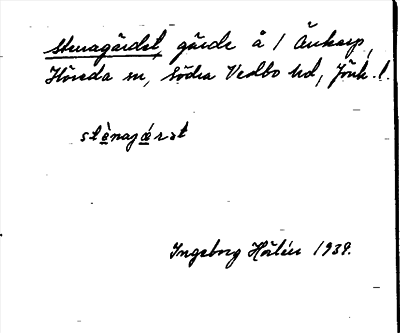 Stenagärdet, gärde å 1 Änkarp,
Höreda sn, Södra Vedbo hd, Jönk. l.
stènajǽrət
Ingeborg Hörlén 1938.